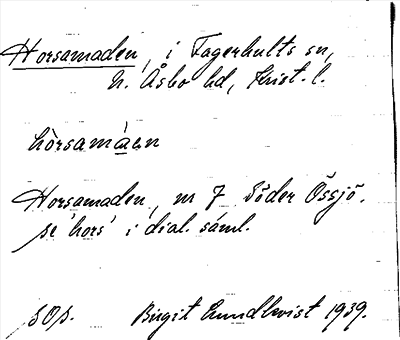 Horsamaden, i Fagerhults sn,
N. Åsbo hd, Krist. l.
hòrsamáen
Horsamaden, m 7 Söder Össjö.
se 'hors' i dial. saml.
sOp. Birgit Lundkvist 1939.